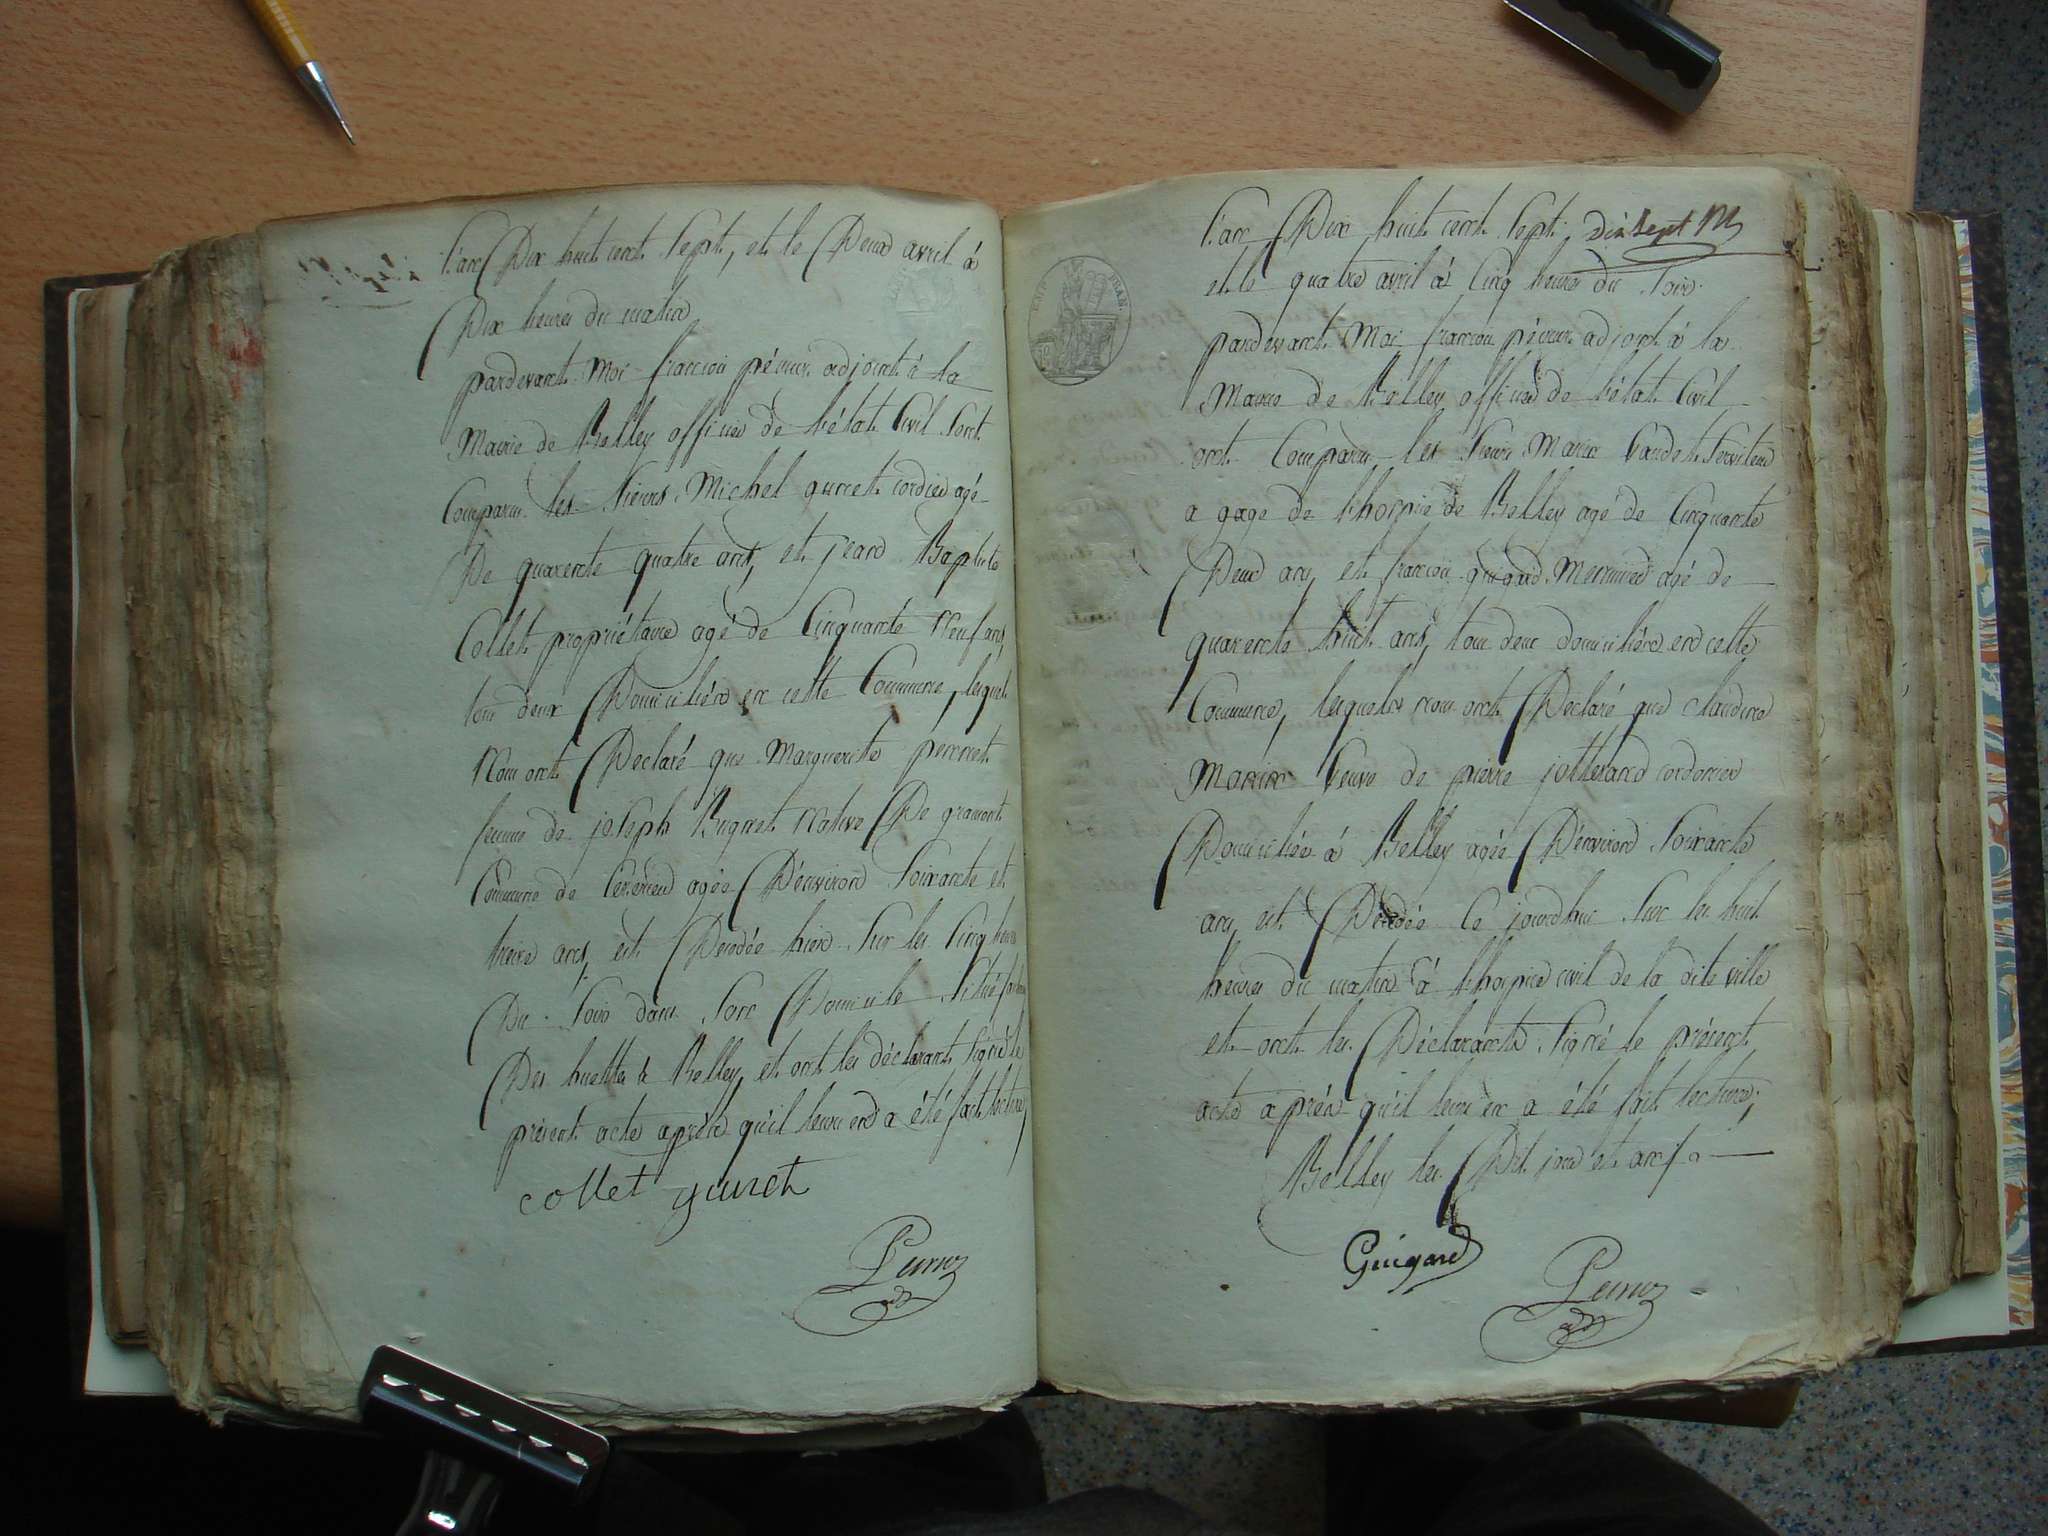 l'an Dix huit cent Sept, et le Deux avril à
Dix heures du matin
pardevant Moi françois adjoint à la
Mairie de Belley officier de l'état Civil Sont
Comparu les Sieurs Michel gurret cordier agé
De quarente quatre ans, et jean Baptiste
Collet propriétaire agé de Cinquante Neuf ans,
tou deux Domiciliés en cette Commune, lesquels
Nous ont Declaré que Marguerite pernet
femme de joseph Buguet Native De gramont
Commune de Ceyzerieu agée D'environ Soixante et
treize ans, est Decedée hier Sur les Cinq heures
Du Soir dans Son Domicile Situé
Des huttes à Belley, et ont les déclarant Signé le
présent acte après qu'il leurs en a été fait lecture,
collet gurret
Peirroz
l'an Dix huit cent Sept. Dixsept M
et le quatre avril à Cinq heures du Soir
pardevant Moi françois adjoint à la
Mairie de Belley officier de l'état Civil
ont Comparu les Sieurs Marin Serviteur
a gage de l'hospice de Belley agé de Cinquante
Deux ans, et françois guigard Menuisier agé de
quarente huit ans, tou deux domiciliés en cette
Commune, lesquels nous ont Declaré que claudine
Marin Veuve de pierre jottrand cordonier
Domiciliée à Belley agée D'environ Soixante
ans est Decedée Ce jourdhui Sur les huit
heures du matin à l'hospice civil de la dite ville
et ont les Déclarants Signé le présent
acte après qu'il leurs en a été fait lecture;
Belley les Dit jour et an
Guigard
Peirroz
EMP. FRAN.